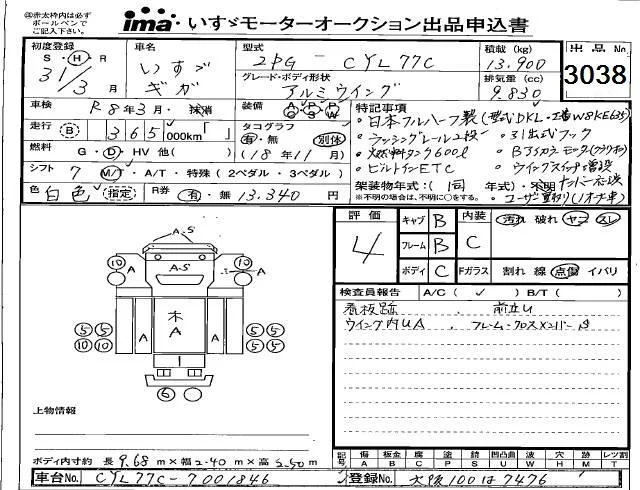 ㊟赤太枠内は必ず
ボールペンで
ご記入下さい。
ima いすゞモーターオークション出品申込書
初度登録 S・H・R 31/3月
車名 いすゞ ギガ
型式 2PG - CYL77C
積載(kg) 13.900
出品No. 3038
グレード・ボディ形状 アルミウイング
排気量(cc) 9.830
車検 R8年3月・抹消
装備 A/C P/S P/W
特記事項
走行 B 365,000km「 」
タコグラフ 有・無 別体 (18年11月)
・日本フルハーフ製(型式DKL・
・ラッシングレール2段
・31出式フック
燃料 G・D・HV 他( )
・燃料タンク600ℓ
シフト 7 M/T・A/T・特殊(2ペダル・3ペダル)
・ビルトインETC
・ウイングスイッチ増設
色 白色(指定)
R券 有・無 13.340円
架装物年式:( 同 年式)・不明
※不明の場合は、不明に○をする。
・ユーザー買取り(1オーナー車)
評価 4
キャブ B
内装 C
汚れ 破れ ヤニ スレ
フレーム B
ボディ C
Fガラス 割れ 線 点傷 イバリ
検査員報告 A/C( ✓ ) B/T( )
看板跡 , 前立U
ウイング内UA , フレーム・クロスメンバーS
A-S
10 A A-S A 10
木
A A A
5 5 5 5
10 10 5 5
6
上物情報
ボディ内寸約 長 9.68 m×幅 2.40 m×高 2.50 m
記号 傷A 板金B 腐C 塗P 錆S 凹凸曲U 波W 穴H 跡M レツ割T
車台No. CYL77C-7001846
登録No. 大阪100は7476